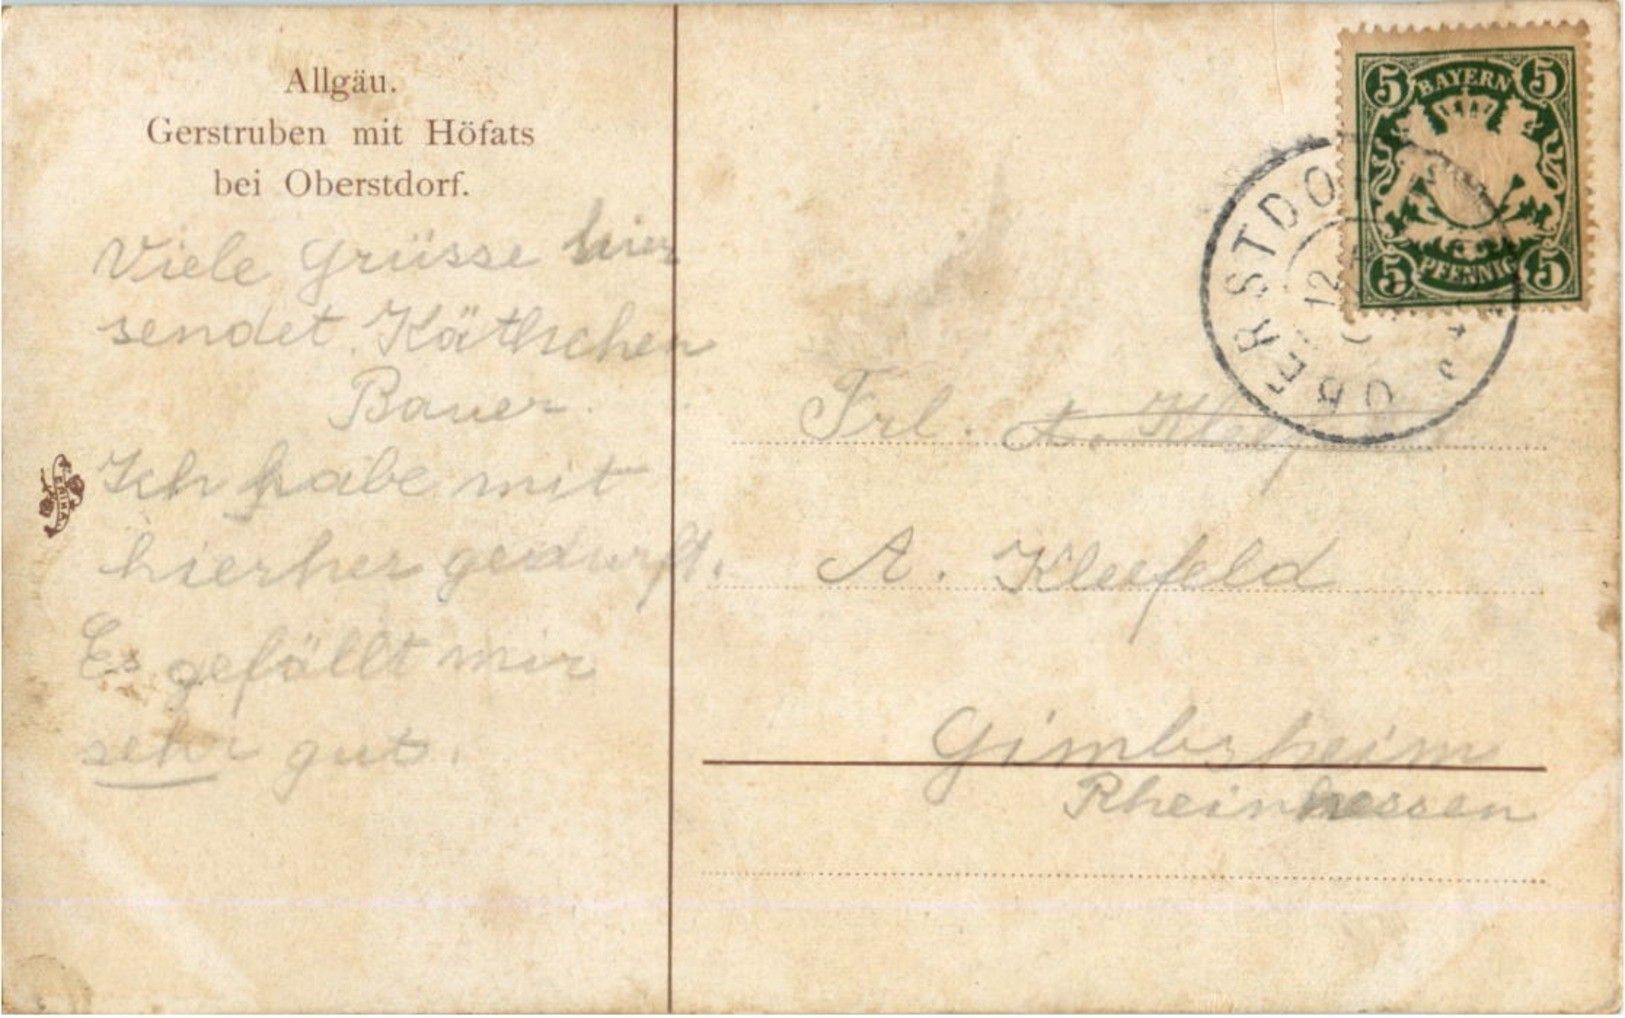 Allgäu.
Gerstruben mit Höfats
bei Oberstdorf.
Viele Grüsse hier
sendet Käthchen
Bauer.
Ich habe mit
hierher gedurft.
Es gefällt mir
sehr gut.
BAYERN
5 5
5 PFENNIG 5
OBERSTDO
12
Frl. A.
A. Kleefeld
Gimbsheim
Rheinhessen